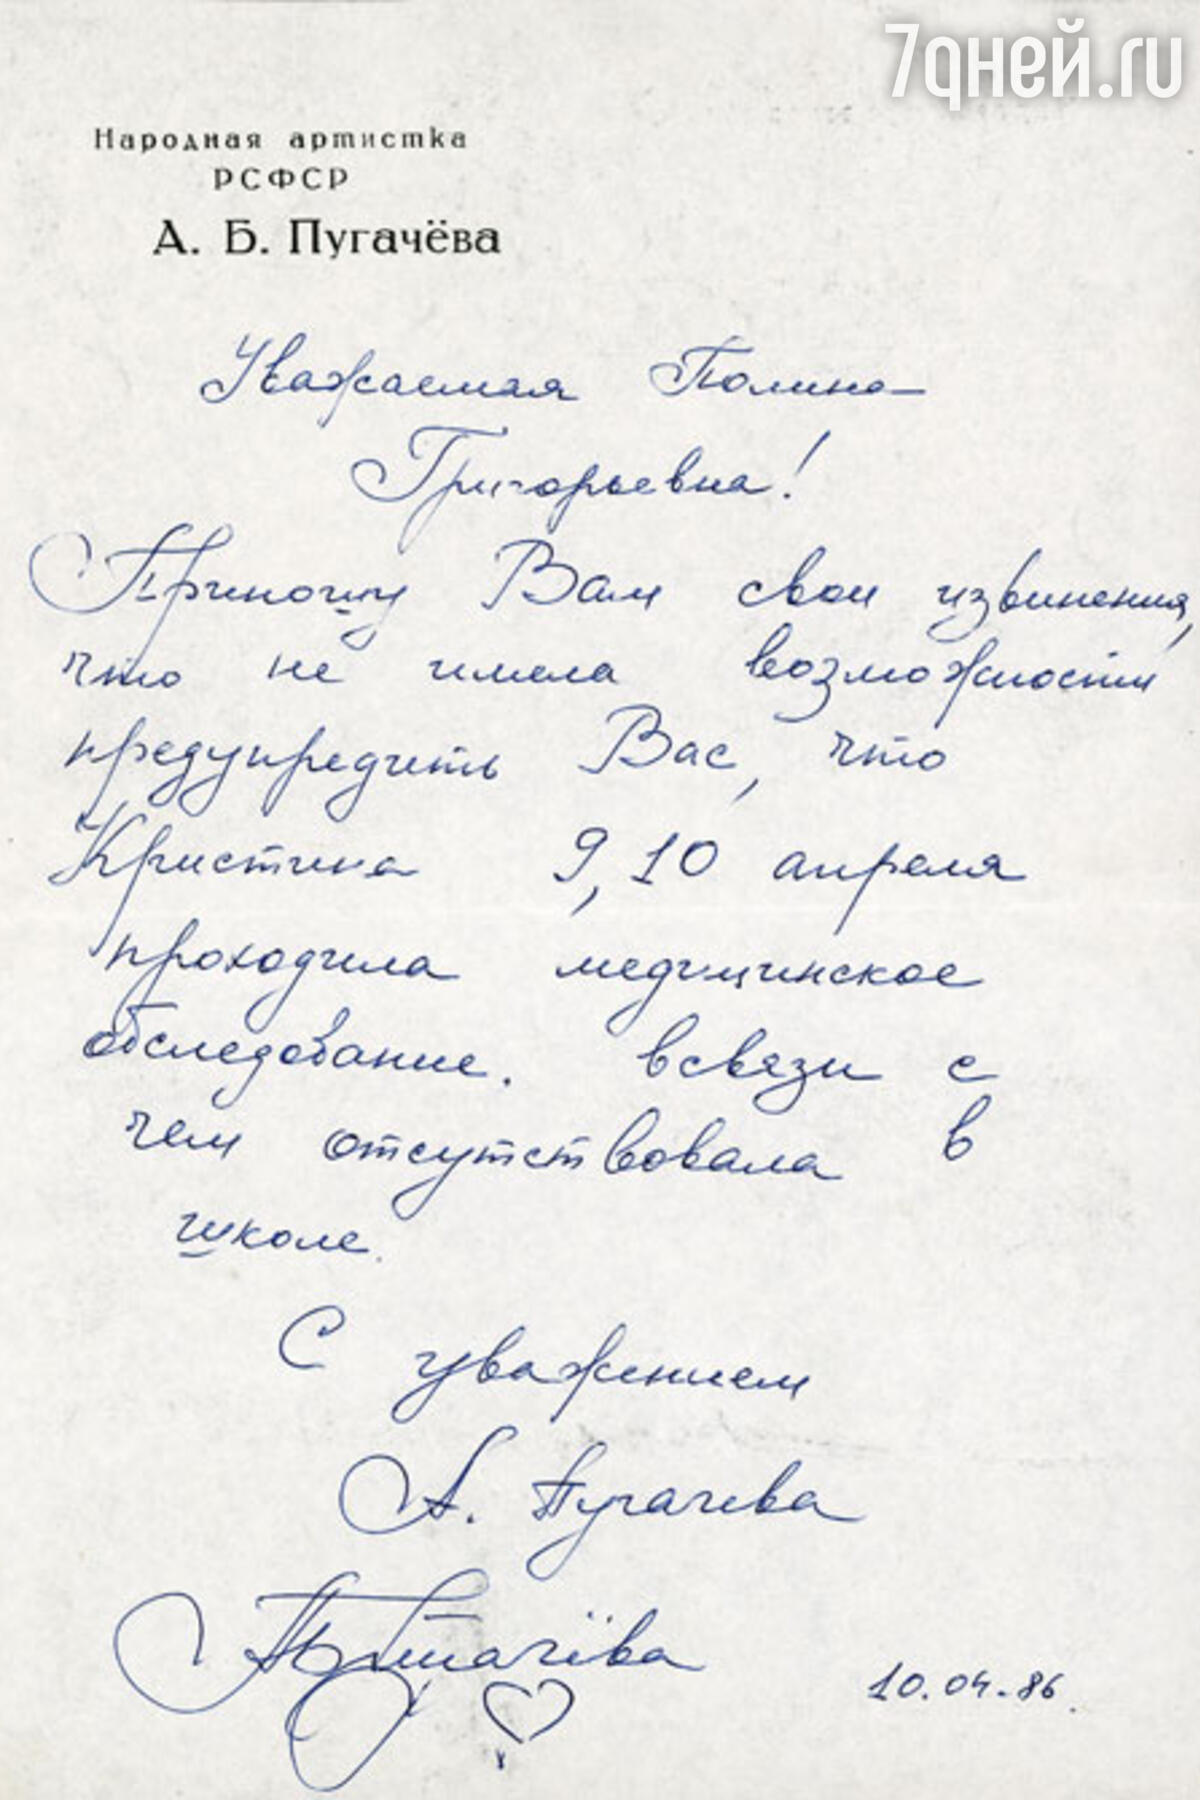 7дней.ru
Народная артистка
РСФСР
А. Б. Пугачёва
Уважаемая Полина
Григорьевна!
Приношу Вам свои извинения,
что не имела возможности
предупредить Вас, что
Кристина 9, 10 апреля
проходила медицинское
обследование. всвязи с
чем отсутствовала в
школе.
С уважением
А. Пугачева
Пугачёва
10.04.86.